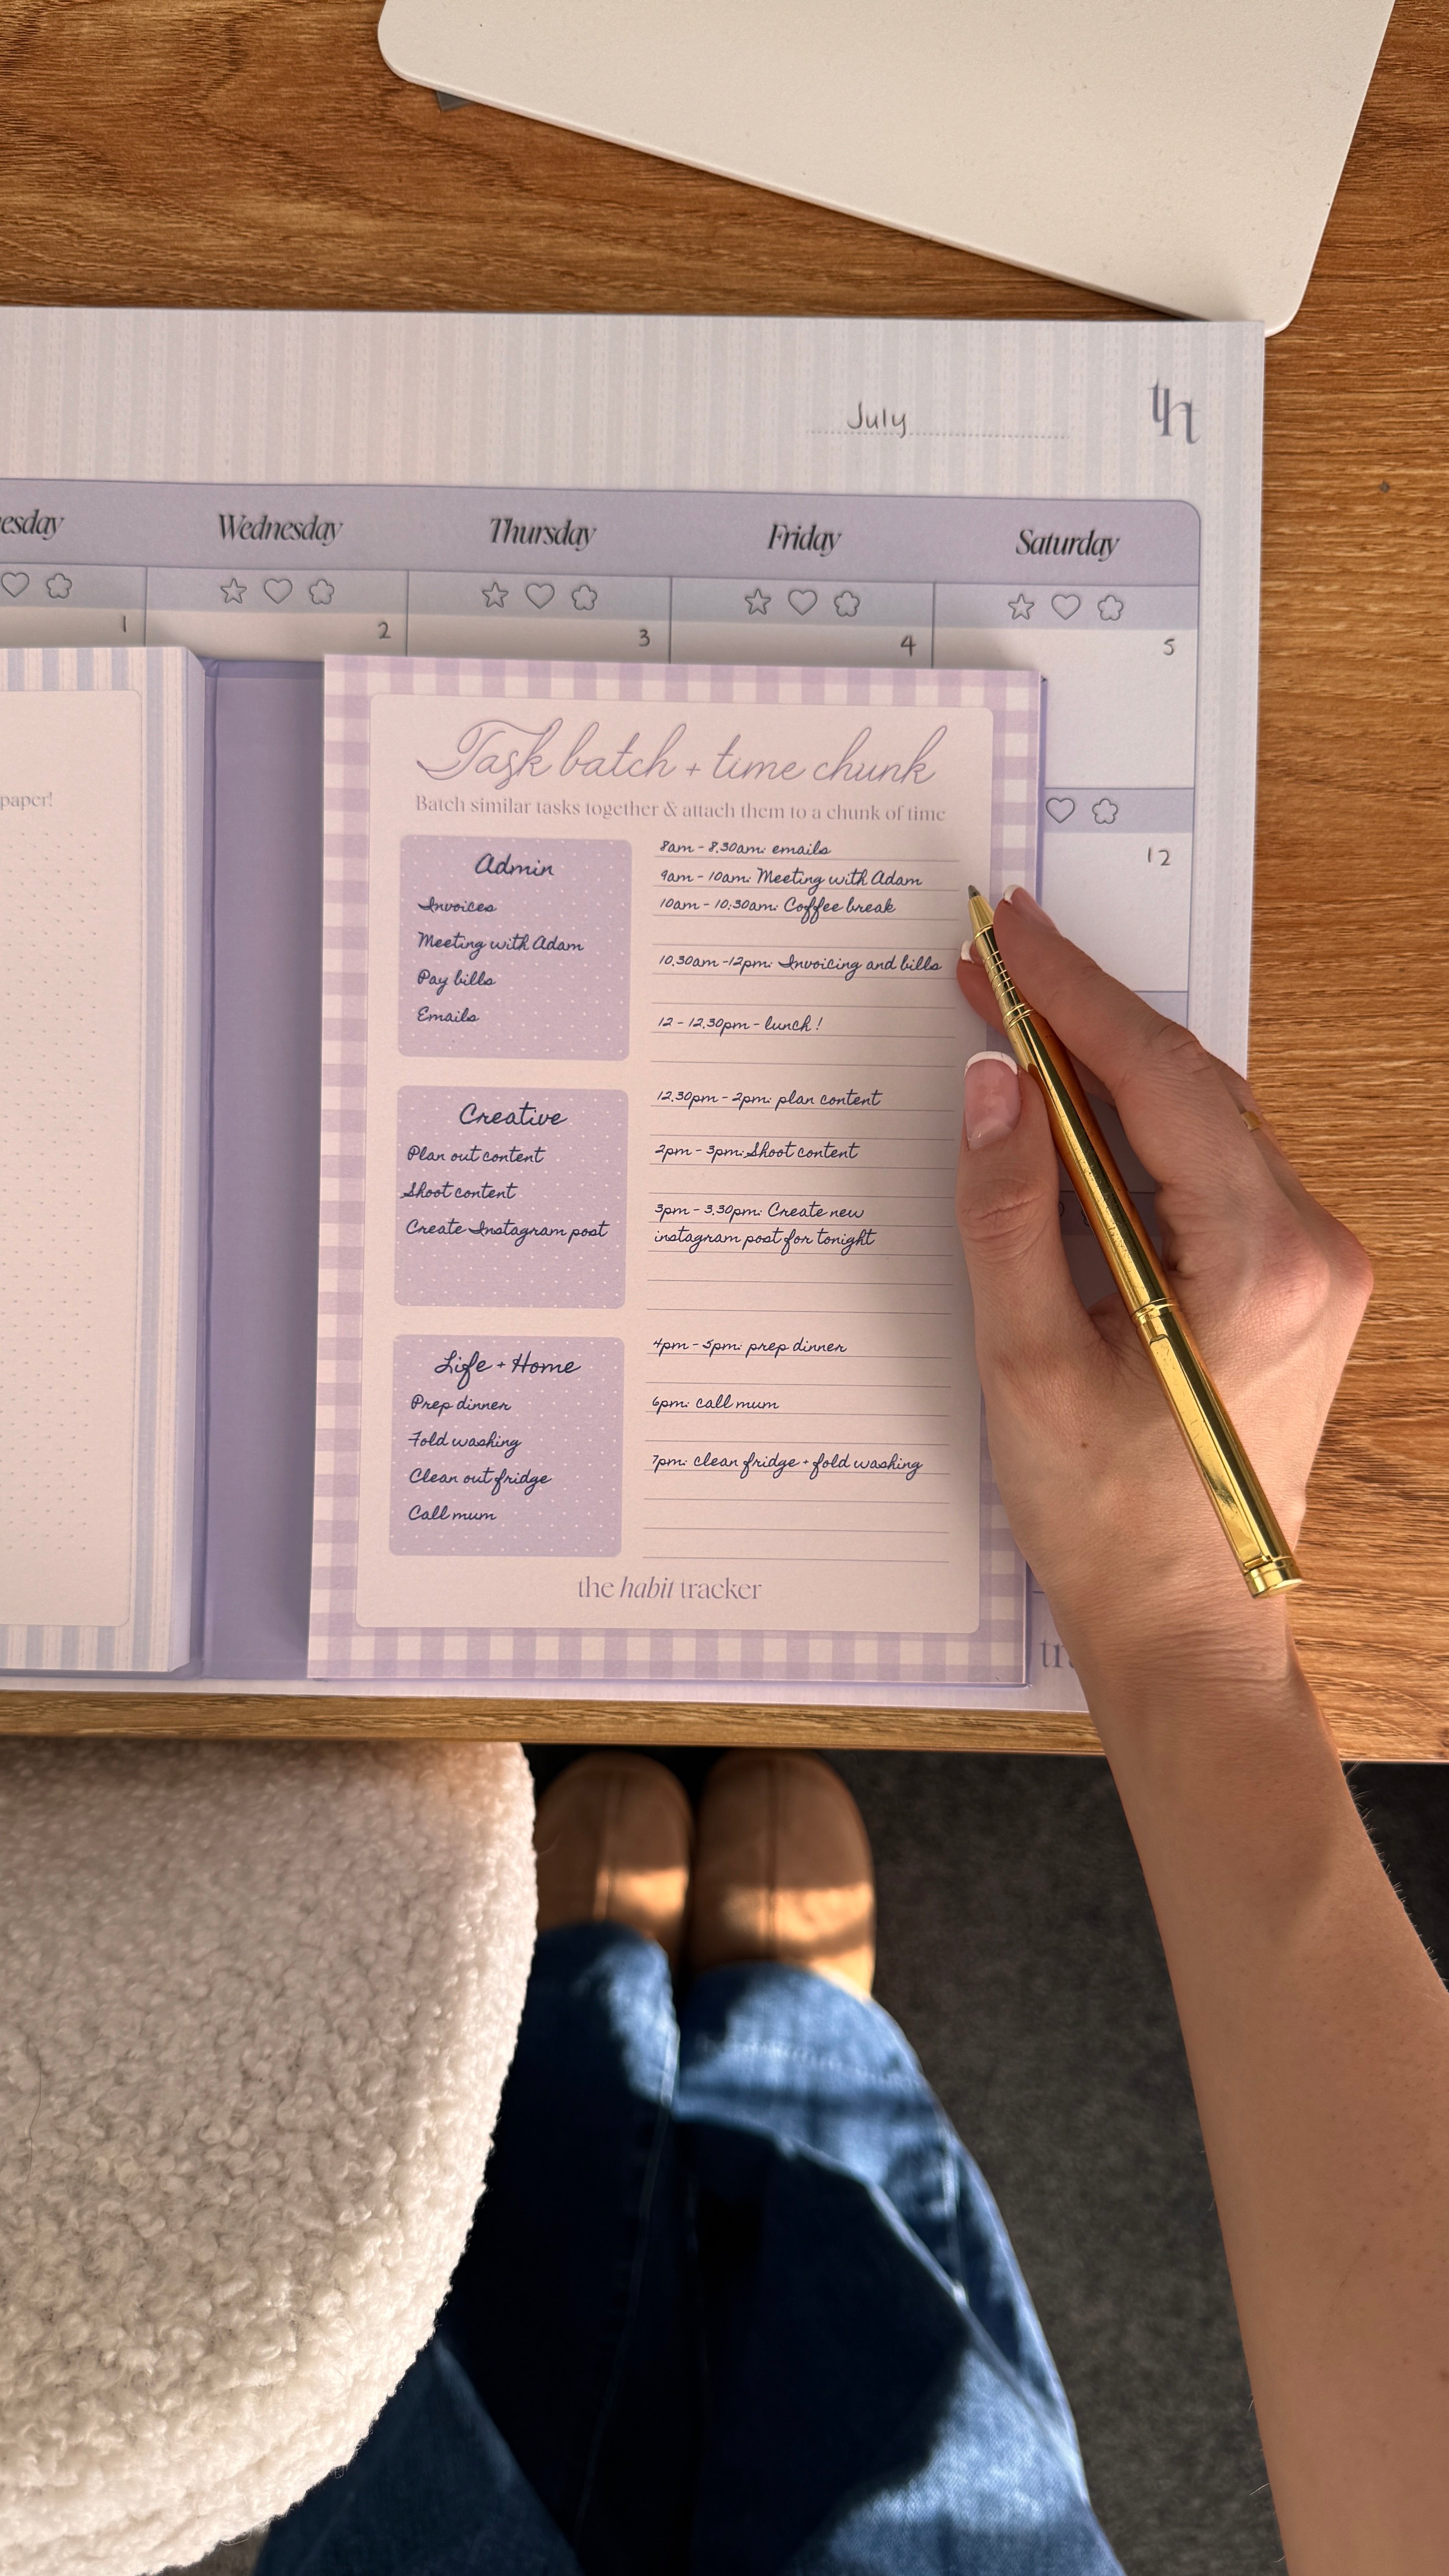 July
th
Wednesday
Thursday
Friday
Saturday
1
2
3
4
5
12
paper!
Task batch + time chunk
Batch similar tasks together & attach them to a chunk of time
Admin
Invoices
Meeting with Adam
Pay bills
Emails
8am - 8.30am: emails
9am - 10am: Meeting with Adam
10am - 10:30am: Coffee break
10.30am -12pm: Invoicing and bills
12 - 12.30pm - lunch !
Creative
Plan out content
Shoot content
Create Instagram post
12.30pm - 2pm: plan content
2pm - 3pm: Shoot content
3pm - 3.30pm: Create new
instagram post for tonight
Life + Home
Prep dinner
Fold washing
Clean out fridge
Call mum
4pm - 5pm: prep dinner
6pm: call mum
7pm: clean fridge + fold washing
the habit tracker